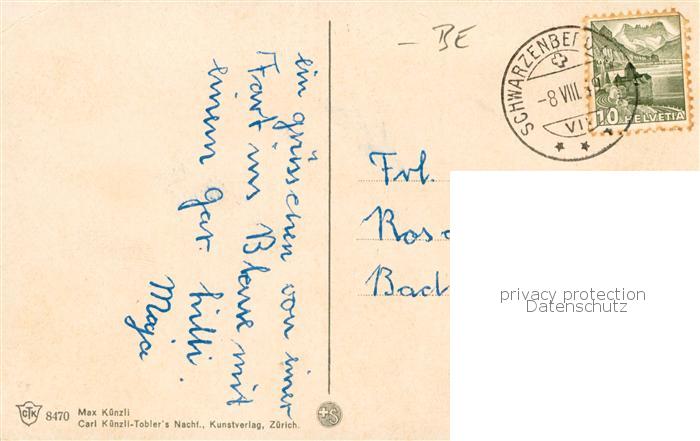 - BE
SCHWARZENBE
-8 VIII. 39
VI
10 HELVETIA
ein grüsschen von einer
Fart ins Blaue mit
einem gar
Maja
Frl.
Ros
Bad
privacy protection
Datenschutz
CTK 8470 Max Künzli
Carl Künzli-Tobler's Nachf., Kunstverlag, Zürich.
+S